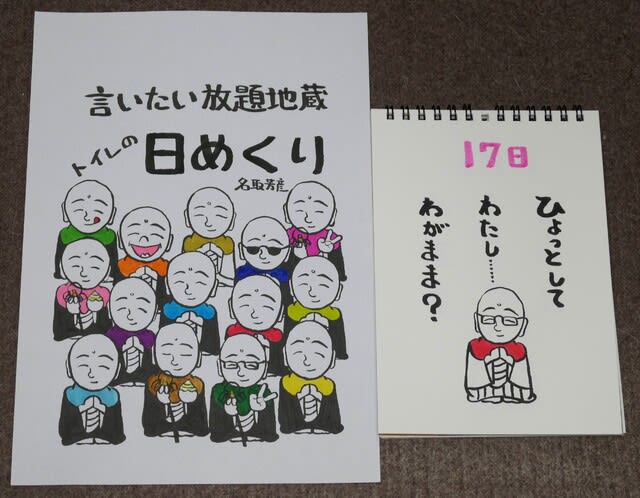 言いたい放題地蔵
トイレの
日めくり
名取芳彦
17日
ひょっとして
わたし……
わがまま?